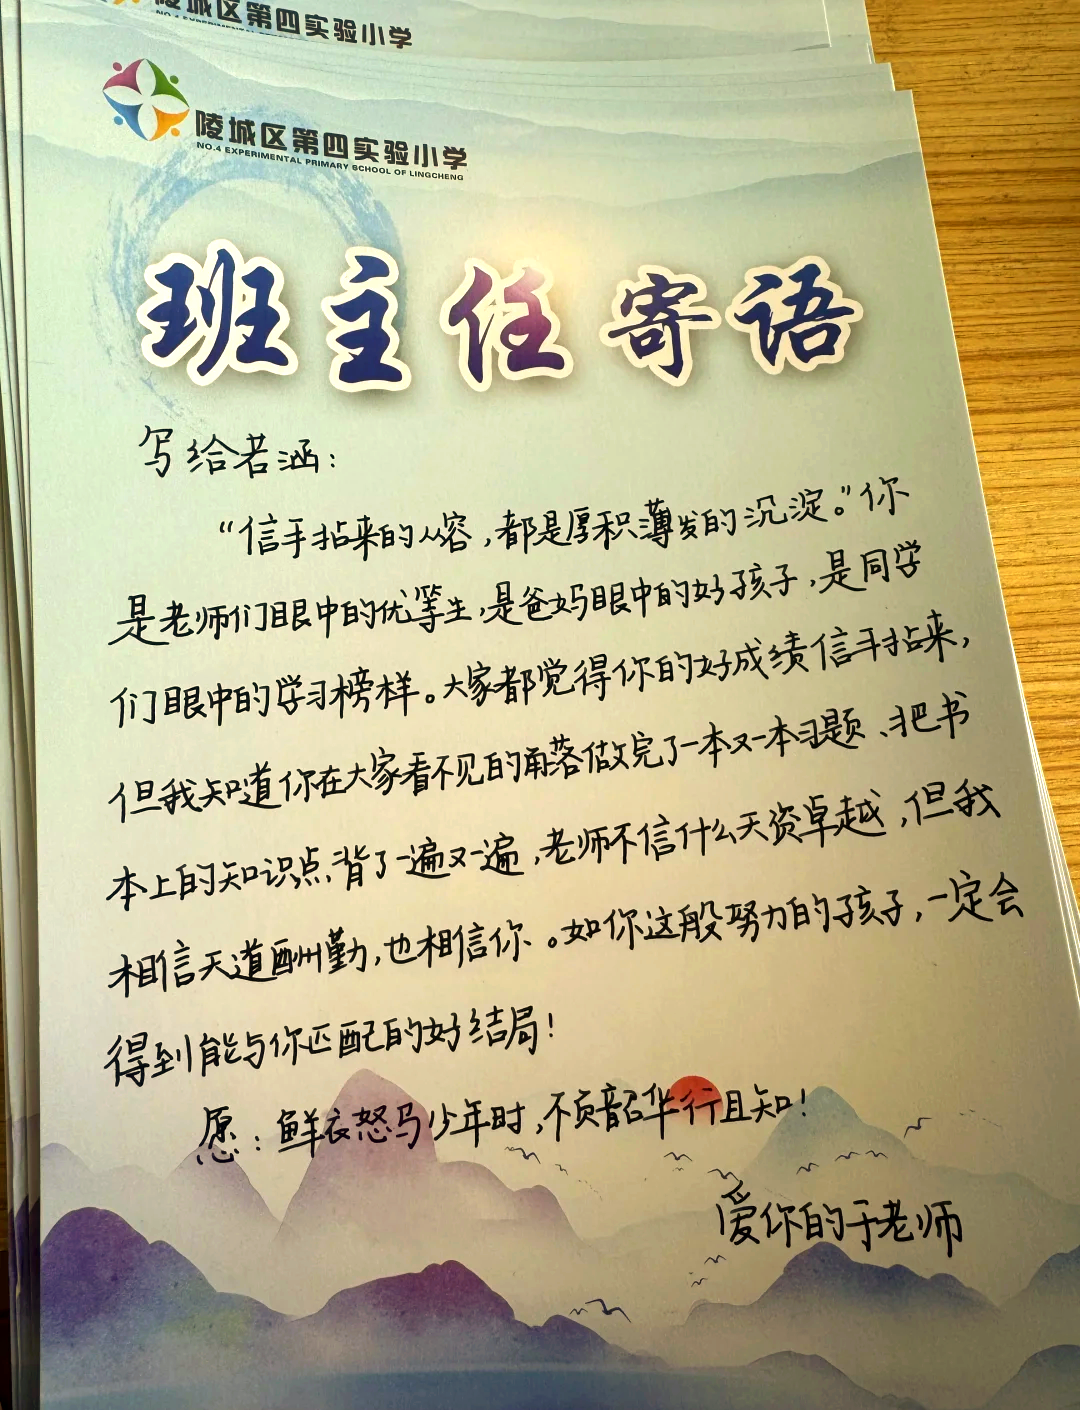 陵城区第四实验小学
陵城区第四实验小学
NO.4 EXPERIMENTAL PRIMARY SCHOOL OF LINGCHENG
班主任寄语
写给若涵：
“信手拈来的从容，都是厚积薄发的沉淀。”你
是老师们眼中的优等生，是爸妈眼中的好孩子，是同学
们眼中的学习榜样。大家都觉得你的好成绩信手拈来，
但我知道你在大家看不见的角落做完了一本又一本习题、把书
本上的知识点背了一遍又一遍，老师不信什么天资卓越，但我
相信天道酬勤，也相信你。如你这般努力的孩子，一定会
得到能与你匹配的好结局！
愿：鲜衣怒马少年时，不负韶华行且知！
爱你的于老师